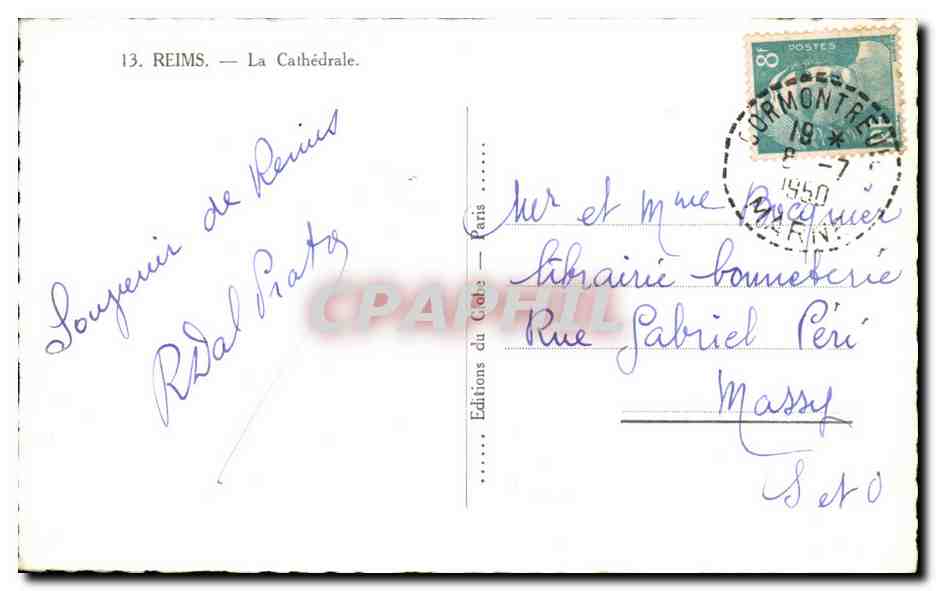 13. REIMS. — La Cathédrale.
Souvenir de Reims
RDal Prato
...... Editions du Globe — Paris ......
8F
POSTES
CORMONTREUIL
19 *
8 -7
1950
MARNE
Mer et Mme Bocquier
librairie bonneterie
Rue Gabriel Péri
Massy
S et O
CPAPHIL